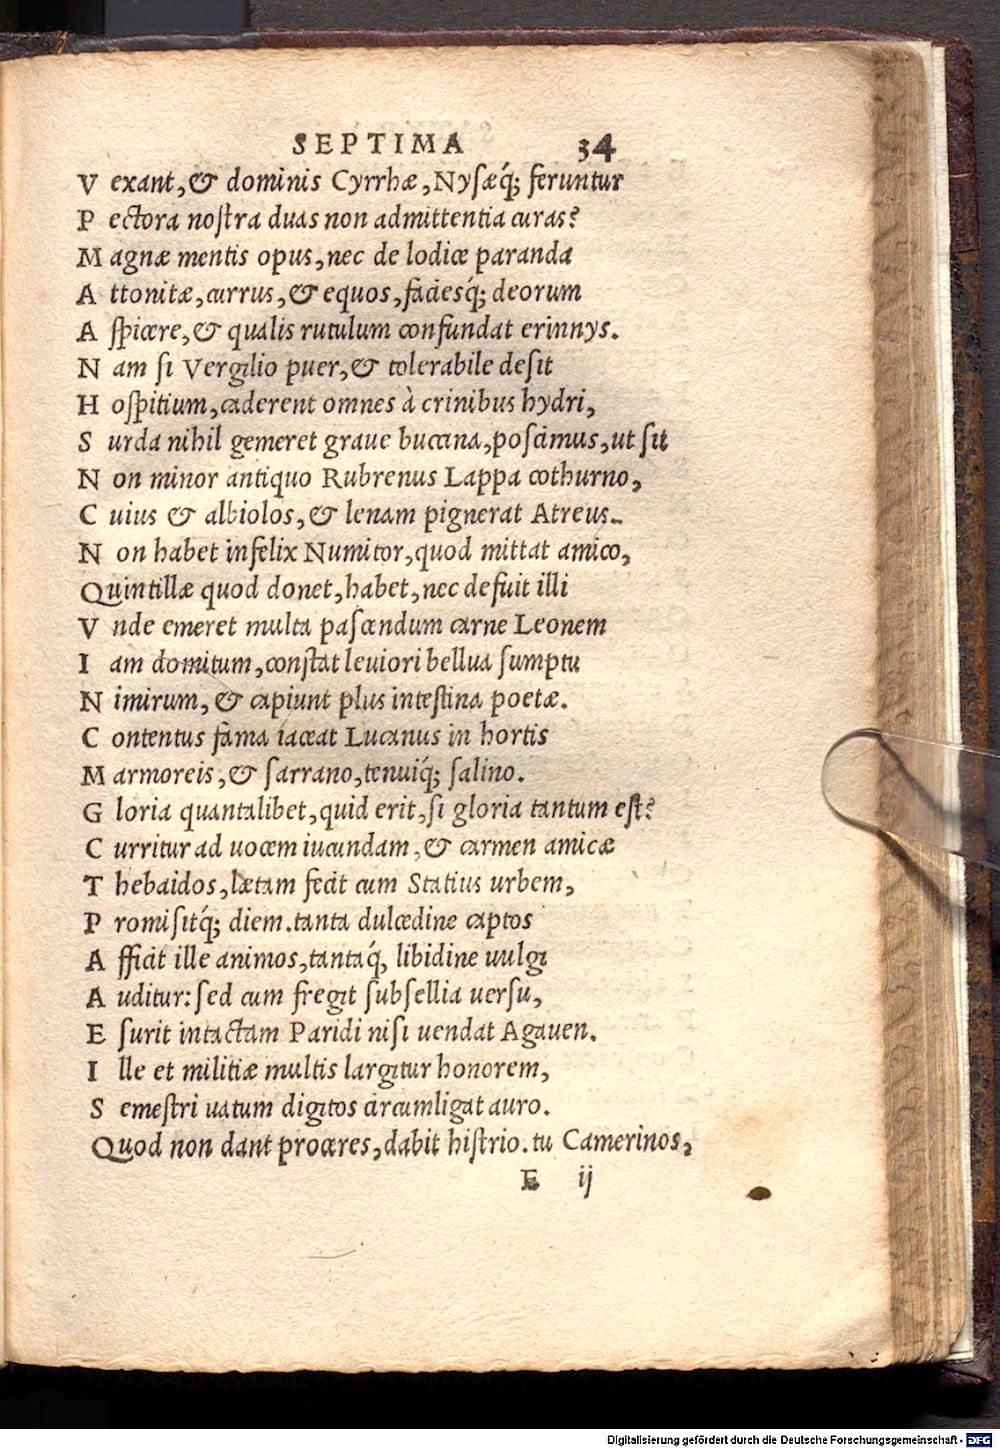 SEPTIMA 34
V exant, & dominis Cyrrhæ, Nysæq́; feruntur
P ectora nostra duas non admittentia curas?
M agnæ mentis opus, nec de lodice paranda
A ttonitæ, currus, & equos, faciesq́; deorum
A spicere, & qualis rutulum confundat erinnys.
N am si Vergilio puer, & tolerabile desit
H ospitium, caderent omnes à crinibus hydri,
S urda nihil gemeret graue buccina, poscimus, ut sit
N on minor antiquo Rubrenus Lappa cothurno,
C uius & albiolos, & lenam pignerat Atreus.
N on habet infelix Numitor, quod mittat amico,
Quintillæ quod donet, habet, nec defuit illi
V nde emeret multa pascendum carne Leonem
I am domitum, constat leuiori bellua sumptu
N imirum, & capiunt plus intestina poetæ.
C ontentus fama iaceat Lucanus in hortis
M armoreis, & sarrano, tenuiq́; salino.
G loria quantalibet, quid erit, si gloria tantum est?
C urritur ad uocem iucundam, & carmen amicæ
T hebaidos, lætam fecit cum Statius urbem,
P romisitq́; diem. tanta dulcedine captos
A fficit ille animos, tantaq́, libidine uulgi
A uditur: sed cum fregit subsellia uersu,
E surit intactam Paridi nisi uendat Agauen.
I lle et militiæ multis largitur honorem,
S emestri uatum digitos circumligat auro.
Quod non dant proceres, dabit histrio. tu Camerinos,
E ij
Digitalisierung gefördert durch die Deutsche Forschungsgemeinschaft - DFG